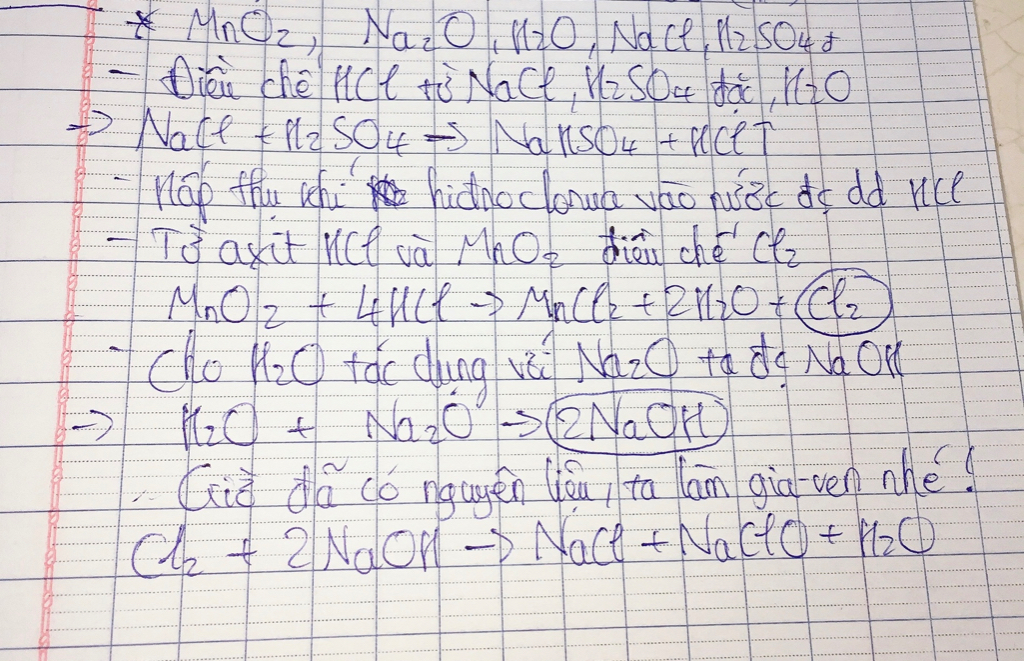 * MnO2, Na2O, H2O, NaCl, H2SO4đ
- Điều chế HCl từ NaCl, H2SO4 đặc, H2O
=> NaCl + H2SO4 -> NaHSO4 + HCl↑
- Hấp thu khí hiđroclorua vào nước đc dd HCl
- Từ axit HCl và MnO2 điều chế Cl2
MnO2 + 4HCl -> MnCl2 + 2H2O + Cl2
- Cho H2O tác dụng với Na2O ta đc NaOH
=> H2O + Na2O -> 2NaOH
- Giờ đã có nguyên liệu, ta làm gia-ven nhé!
Cl2 + 2NaOH -> NaCl + NaClO + H2O